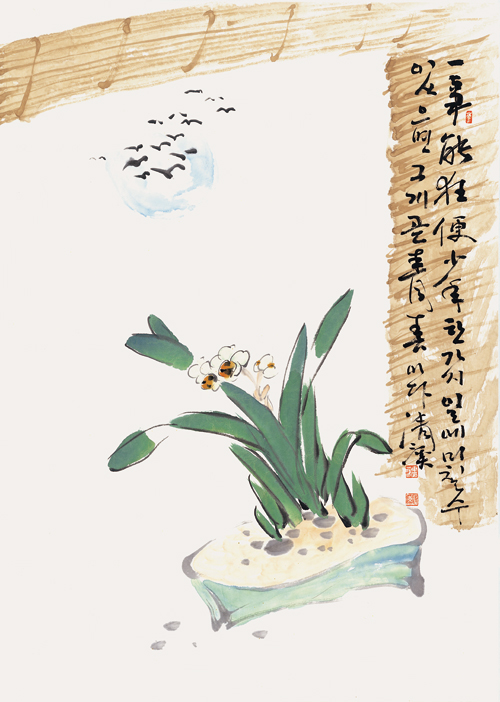 一事能狂便少年 한가지 일에 미칠 수
있으면 그게 곧 靑春이다